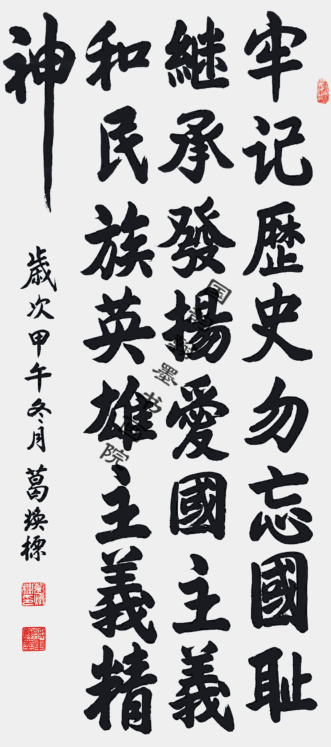 牢记歷史勿忘國耻
継承發揚愛國主義
和民族英雄主義精
神
歳次甲午冬月葛焕標